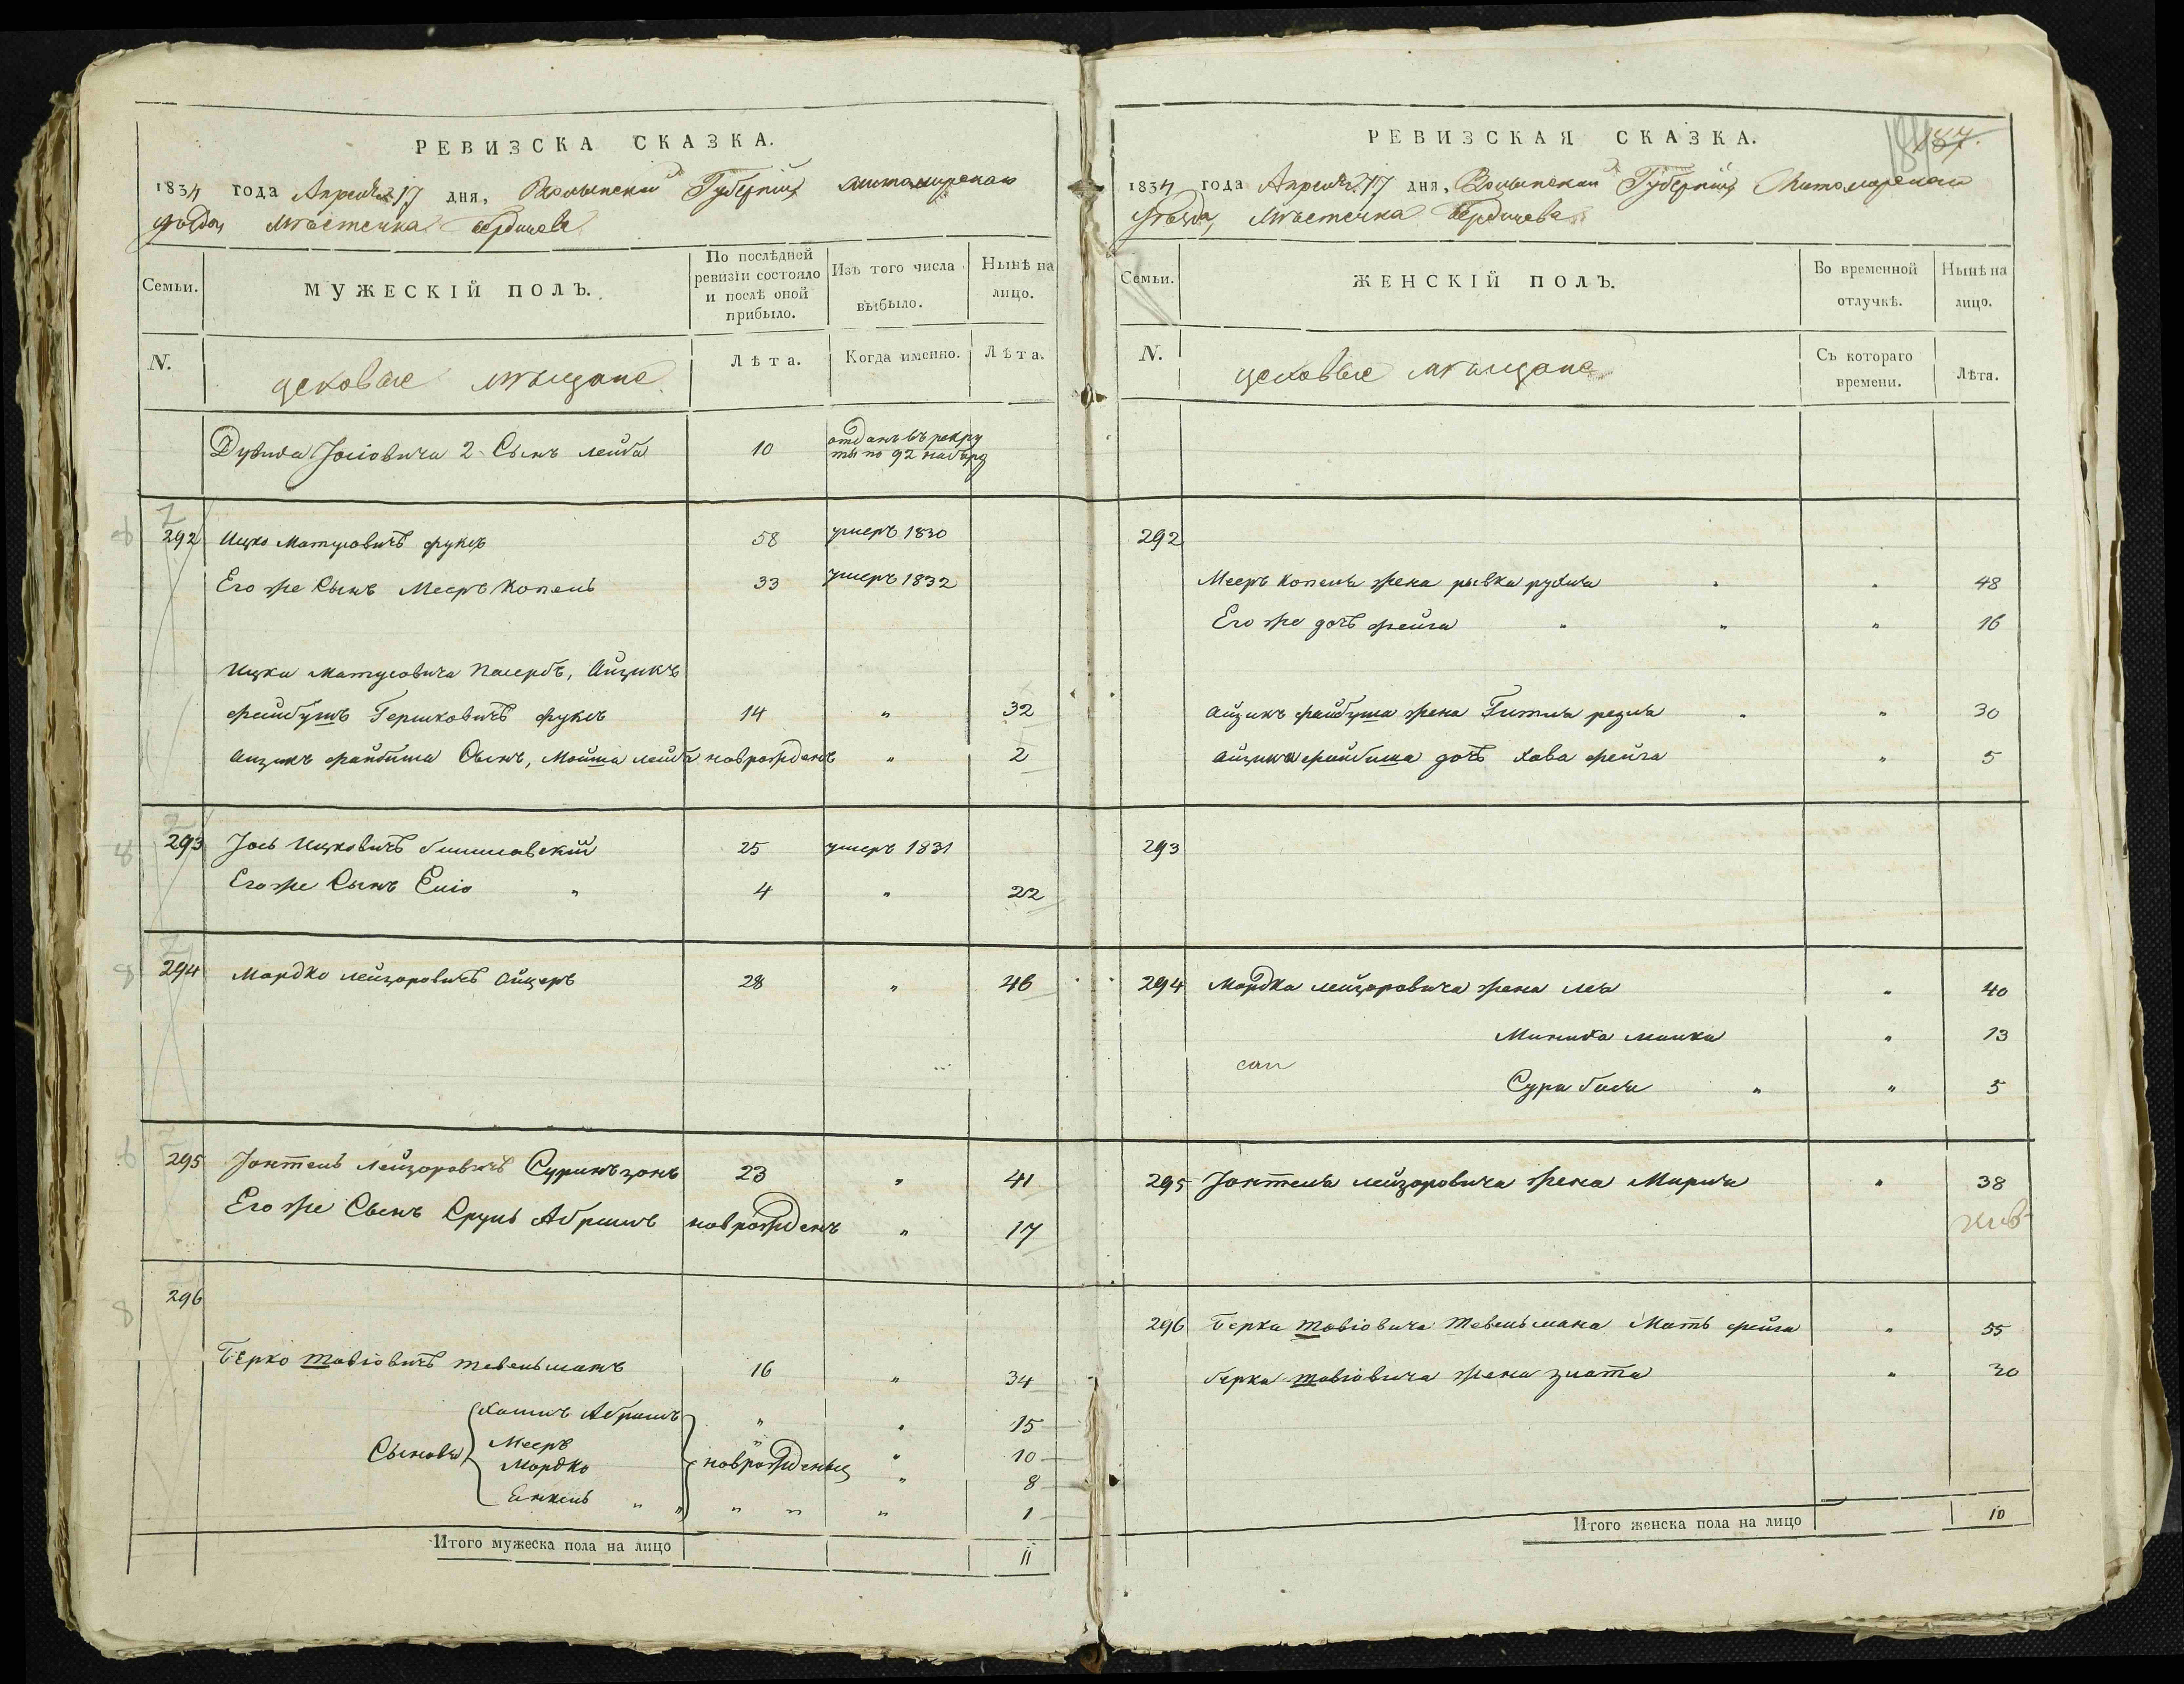 РЕВИЗСКА СКАЗКА.
1834 года Апреля 17 дня, Волынской Губерніи Житомирскаго
уѣзда Мѣстечка Бердичева
Семьи.
МУЖЕСКІЙ ПОЛЪ.
По послѣдней ревизіи состояло и послѣ оной прибыло.
Изъ того числа выбыло.
Нынѣ на лицо.
N.
цеховые мѣщане
Лѣта.
Когда именно.
Лѣта.
Дувида Іосіовича 2 Сынъ Лейба 10 отданъ въ рекру
ты по 92 набору
292 Ицко Матусовичъ Фуксъ 58 умеръ 1830
Его же Сынъ Мееръ Копель 33 умеръ 1832
Ицка Матусовича Пасербъ, Айзикъ
Файбушъ Гершковичъ Фуксъ 14 " 32
Айзикъ Файбиша Сынъ, Мойша Лейба новрожденъ " 2
293 Іось Ицковичъ 25 умеръ 1831
Его же Сынъ Еліо " 4 " 22
294 Мордко Лейзоровичъ 28 " 46
295 Іонтель Лейзоровичъ 23 " 41
Его же Сынъ Сруль Абрамъ новрожденъ " 17
296
Берко Тавіовичъ Тевельманъ 16 " 34
Хаимъ Абрамъ " " 15
Сыновья Мееръ " " 10
Мордко новрожденны " 8
Енкель " " " " " 1
Итого мужеска пола на лицо 11
РЕВИЗСКАЯ СКАЗКА.
187.
1834 года Апреля 17 дня, Волынской Губерніи Житомирскаго
уѣзда, Мѣстечка Бердичева
Семьи.
ЖЕНСКІЙ ПОЛЪ.
Во временной отлучкѣ.
Нынѣ на лицо.
N.
цеховые мѣщане
Съ котораго времени.
Лѣта.
292
Мееръ Копеля жена Рывка Рухля " " 48
Его же дочь Фейга " " " 16
Айзикъ Файбуша жена Гитля Рейзля " " 30
Айзика Файбиша дочь Хава Фейга " 5
293
294 Мордка Лейзоровича жена Лея " 40
Миниха Малка " 13
Сура Бася " " 5
295 Іонтеля Лейзоровича жена Мирля " 38
296 Берка Тавіовича Тевельмана Мать Фейга " 55
Берка Тавіовича жена Злата " 30
Итого женска пола на лицо 10